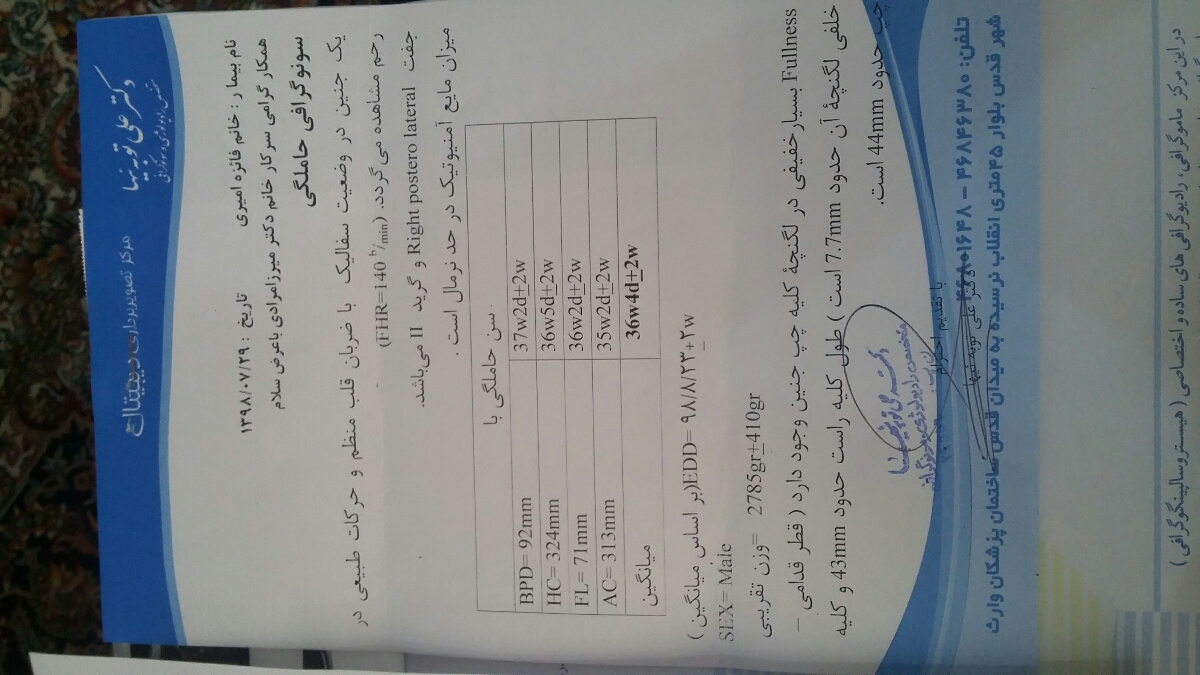 دکتر علی توبه نیها
مرکز تصویربرداری دیجیتال
نام بیمار : خانم فائزه امیری تاریخ : ۱۳۹۸/۰۷/۲۹
همکار گرامی سرکار خانم دکتر میرزامرادی باعرض سلام
سونوگرافی حاملگی
یک جنین در وضعیت سفالیک با ضربان قلب منظم و حرکات طبیعی در
رحم مشاهده می گردد. (FHR=140 b/min)
جفت Right postero lateral و گرید II می باشد.
میزان مایع آمنیوتیک در حد نرمال است .
سن حاملگی با
BPD= 92mm 37w2d±2w
HC= 324mm 36w5d±2w
FL= 71mm 36w2d±2w
AC= 313mm 35w2d±2w
میانگین 36w4d±2w
(بر اساس میانگین )EDD= ۹۸/۸/۲۳±۲w
SEX= Male
وزن تقریبی= 2785gr±410gr
Fullness بسیار خفیفی در لگنچۀ کلیه چپ جنین وجود دارد ( قطر قدامی –
خلفی لگنچۀ آن حدود 7.7mm است ) طول کلیه راست حدود 43mm و کلیه
چپ حدود 44mm است.
با تقدیم احترام
دکتر علی توبه نیها
تلفن: ۴۶۸۴۶۳۸۰ – ۴۶۸۰۱۶۴۸
شهر قدس بلوار ۴۵متری انقلاب نرسیده به میدان قدس ساختمان پزشکان وارث
در این مرکز ماموگرافی، رادیوگرافی های ساده و اختصاصی ( هیستروسالپنگوگرافی )